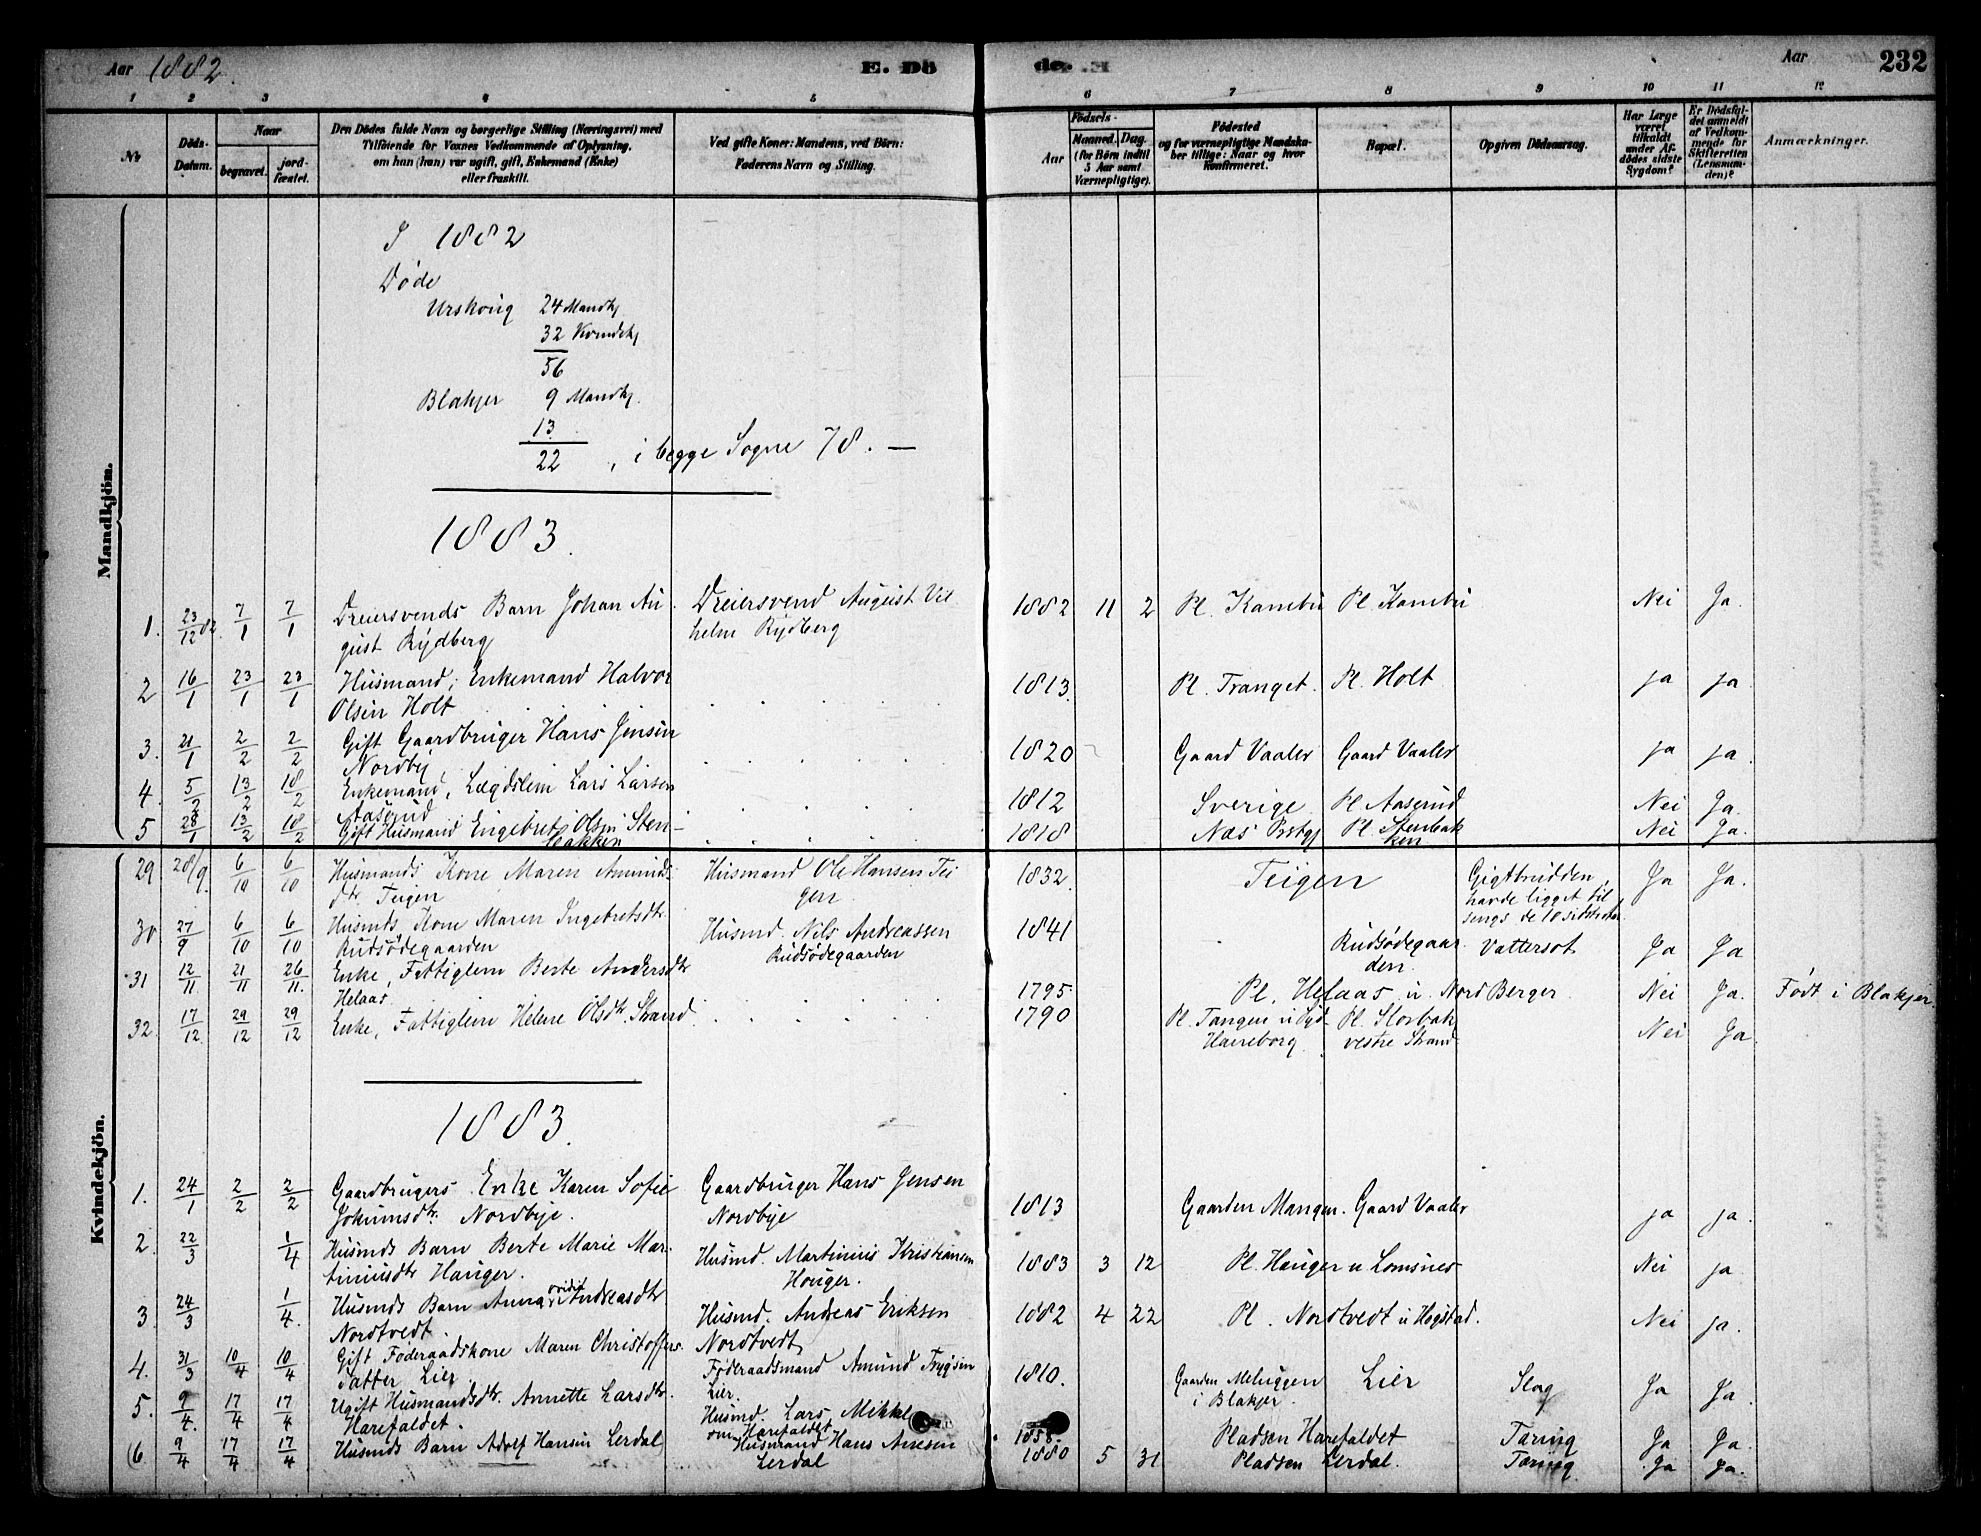 Aar 1882.
E. Dö
de. .E
Aar
232
1 2 3 4 5 6 7 8 9 10 11 12
№
Döds-Datum.
Naar
begravet.
jord-fæstet.
Den Dödes fulde Navn og borgerlige Stilling (Næringsvei) med
Tilföiende for Voxnes Vedkommende af Oplysning,
om han (hun) var ugift, gift, Enkemand (Enke)
eller fraskilt.
Ved gifte Koner: Mandens, ved Börn:
Faderens Navn og Stilling.
Födsels-
Aar
Maaned. Dag.
(for Börn indtil
5 Aar samt
Værnepligtige).
Födested
og for værnepligtige Mandska-
ber tillige: Naar og hvor
Konfirmeret.
Bopæl.
Opgiven Dödsaarsag.
Har Læge
været
tilkaldt
under Af-
dödes sidste
Sygdom?
Er Dödsfal-
det anmeldt
af Vedkom-
mende for
Skifteretten
(Lensman-
den)?
Anmærkninger.
Mandkjön.
I 1882
Døde
Urskoug 24 Mandkj
32 Kvindekj
56
Blakjer 9 Mandkj.
13
22, i begge Sogne 78. —
1883.
1. 23/12 82. 7/1 7/1 Dreiersvends Barn Johan Au- Dreiersvend August Vil 1882 11 2 Pl. Kambu Pl. Kambu Nei Ja.
gust Rydberg helm Rydberg
2 16/1 23/1 23/1 Husmand, Enkemand Halvor 1813. Pl. Tranget. Pl. Holt ja ja
Olsen Holt
3. 21/1 2/2 2/2 Gift Gaardbruger Hans Jensen 1820 Gaard Vaaler Gaard Vaaler ja ja
Nordby
4. 5/2 13/2 18/2 Enkemand, Lægdslem Lars Larsen 1812 Sverige Pl. Aaserud Nei Ja.
Aaserud
5 28/1 13/2 18/2 Gift Husmand Engebret Olsen Sten- 1818 Næs Prstgj Pl. Stenbak Nei Ja.
bakken ken
Kvindekjön.
29 28/9. 6/10 6/10 Husmands Kone Maren Amunds- Husmand Ole Hansen Tei 1832. Teigen Gigtbrudden, Ja Ja.
dtr Teigen gen havde ligget til
sengs de 10 sidste Aar.
30 27/9 6/10 6/10 Husmds Kone Maren Ingebretsdtr Husmd. Nils Andreassen 1841 Rudsødegaar- Vattersot Ja Ja
Rudsødegaarden Rudsødegaarden den
31 12/11 21/11 26/11. Enke, Fattiglem Berte Andersdtr 1795 Pl. Helaas u. Nord Berger Nei Ja. Født i Blakjer.
Helaas
32. 17/12 29/12 29/12 Enke, Fattiglem Helene Olsdtr. Strand. 1790 Pl. Tangen u Syd- Pl. Storbak Nei Ja.
Haneborg. vestre Strand
1883.
1. 24/1 2/2 2/2 Gaardbrugers Enke Karen Sofie Gaardbruger Hans Jensen 1813 Gaarden Mangen. Gaard Vaaler ja ja.
Jokumsdtr. Nordbye. Nordbye
2. 22/3 1/4 Husmds Barn Berte Marie Mar- Husmd. Martinius Kristiansen 1883 3 12 Pl. Hauger u Lomsnes Nei ja
tiniusdtr Hauger. Hauger.
3. 24/3 1/4. Husmds Barn Anna ovidie Andreasdtr Husmd. Andreas Eriksen 1882 4 22 Pl. Nordtvedt u Hogstad. Nei ja.
Nordtvedt. Nordtvedt
4. 31/3 10/4 10/4 Gift Føderaadskone Maren Christoffers- Føderaadsmand Amund Trygsen 1810. Gaarden Melnggen Lier Slag Ja Ja.
datter Lier Lier. i Blakjer.
5. 9/4. 17/4 17/4 Ugift Husmandsdtr. Annette Larsdtr. Husmd. Lars Mikkel 1858. Pladsen Harefaldet Tæring Ja Ja.
Harefaldet. Harefaldet
6 9/4 17/4 17/4 Husmds Barn Adolf Hansen Lerdal Husmand Hans Arnesen 1880 5 31 Pladsen Lerdal. Tæring Ja Ja.
Lerdal